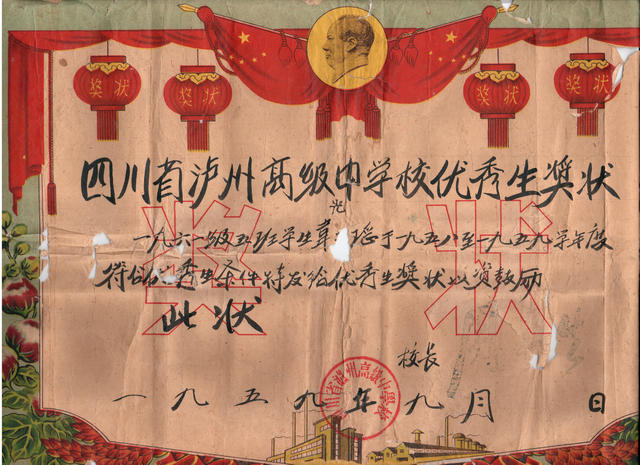 奖状
奖状
四川省泸州高级中学校优秀生奖状
光
一九六一级五班学生章隐于一九五八至一九五九学年度
符合优秀生条件特发给优秀生奖状以资鼓励
奖状
此状
校长
一九五九年九月 日
四川省泸州高级中学校